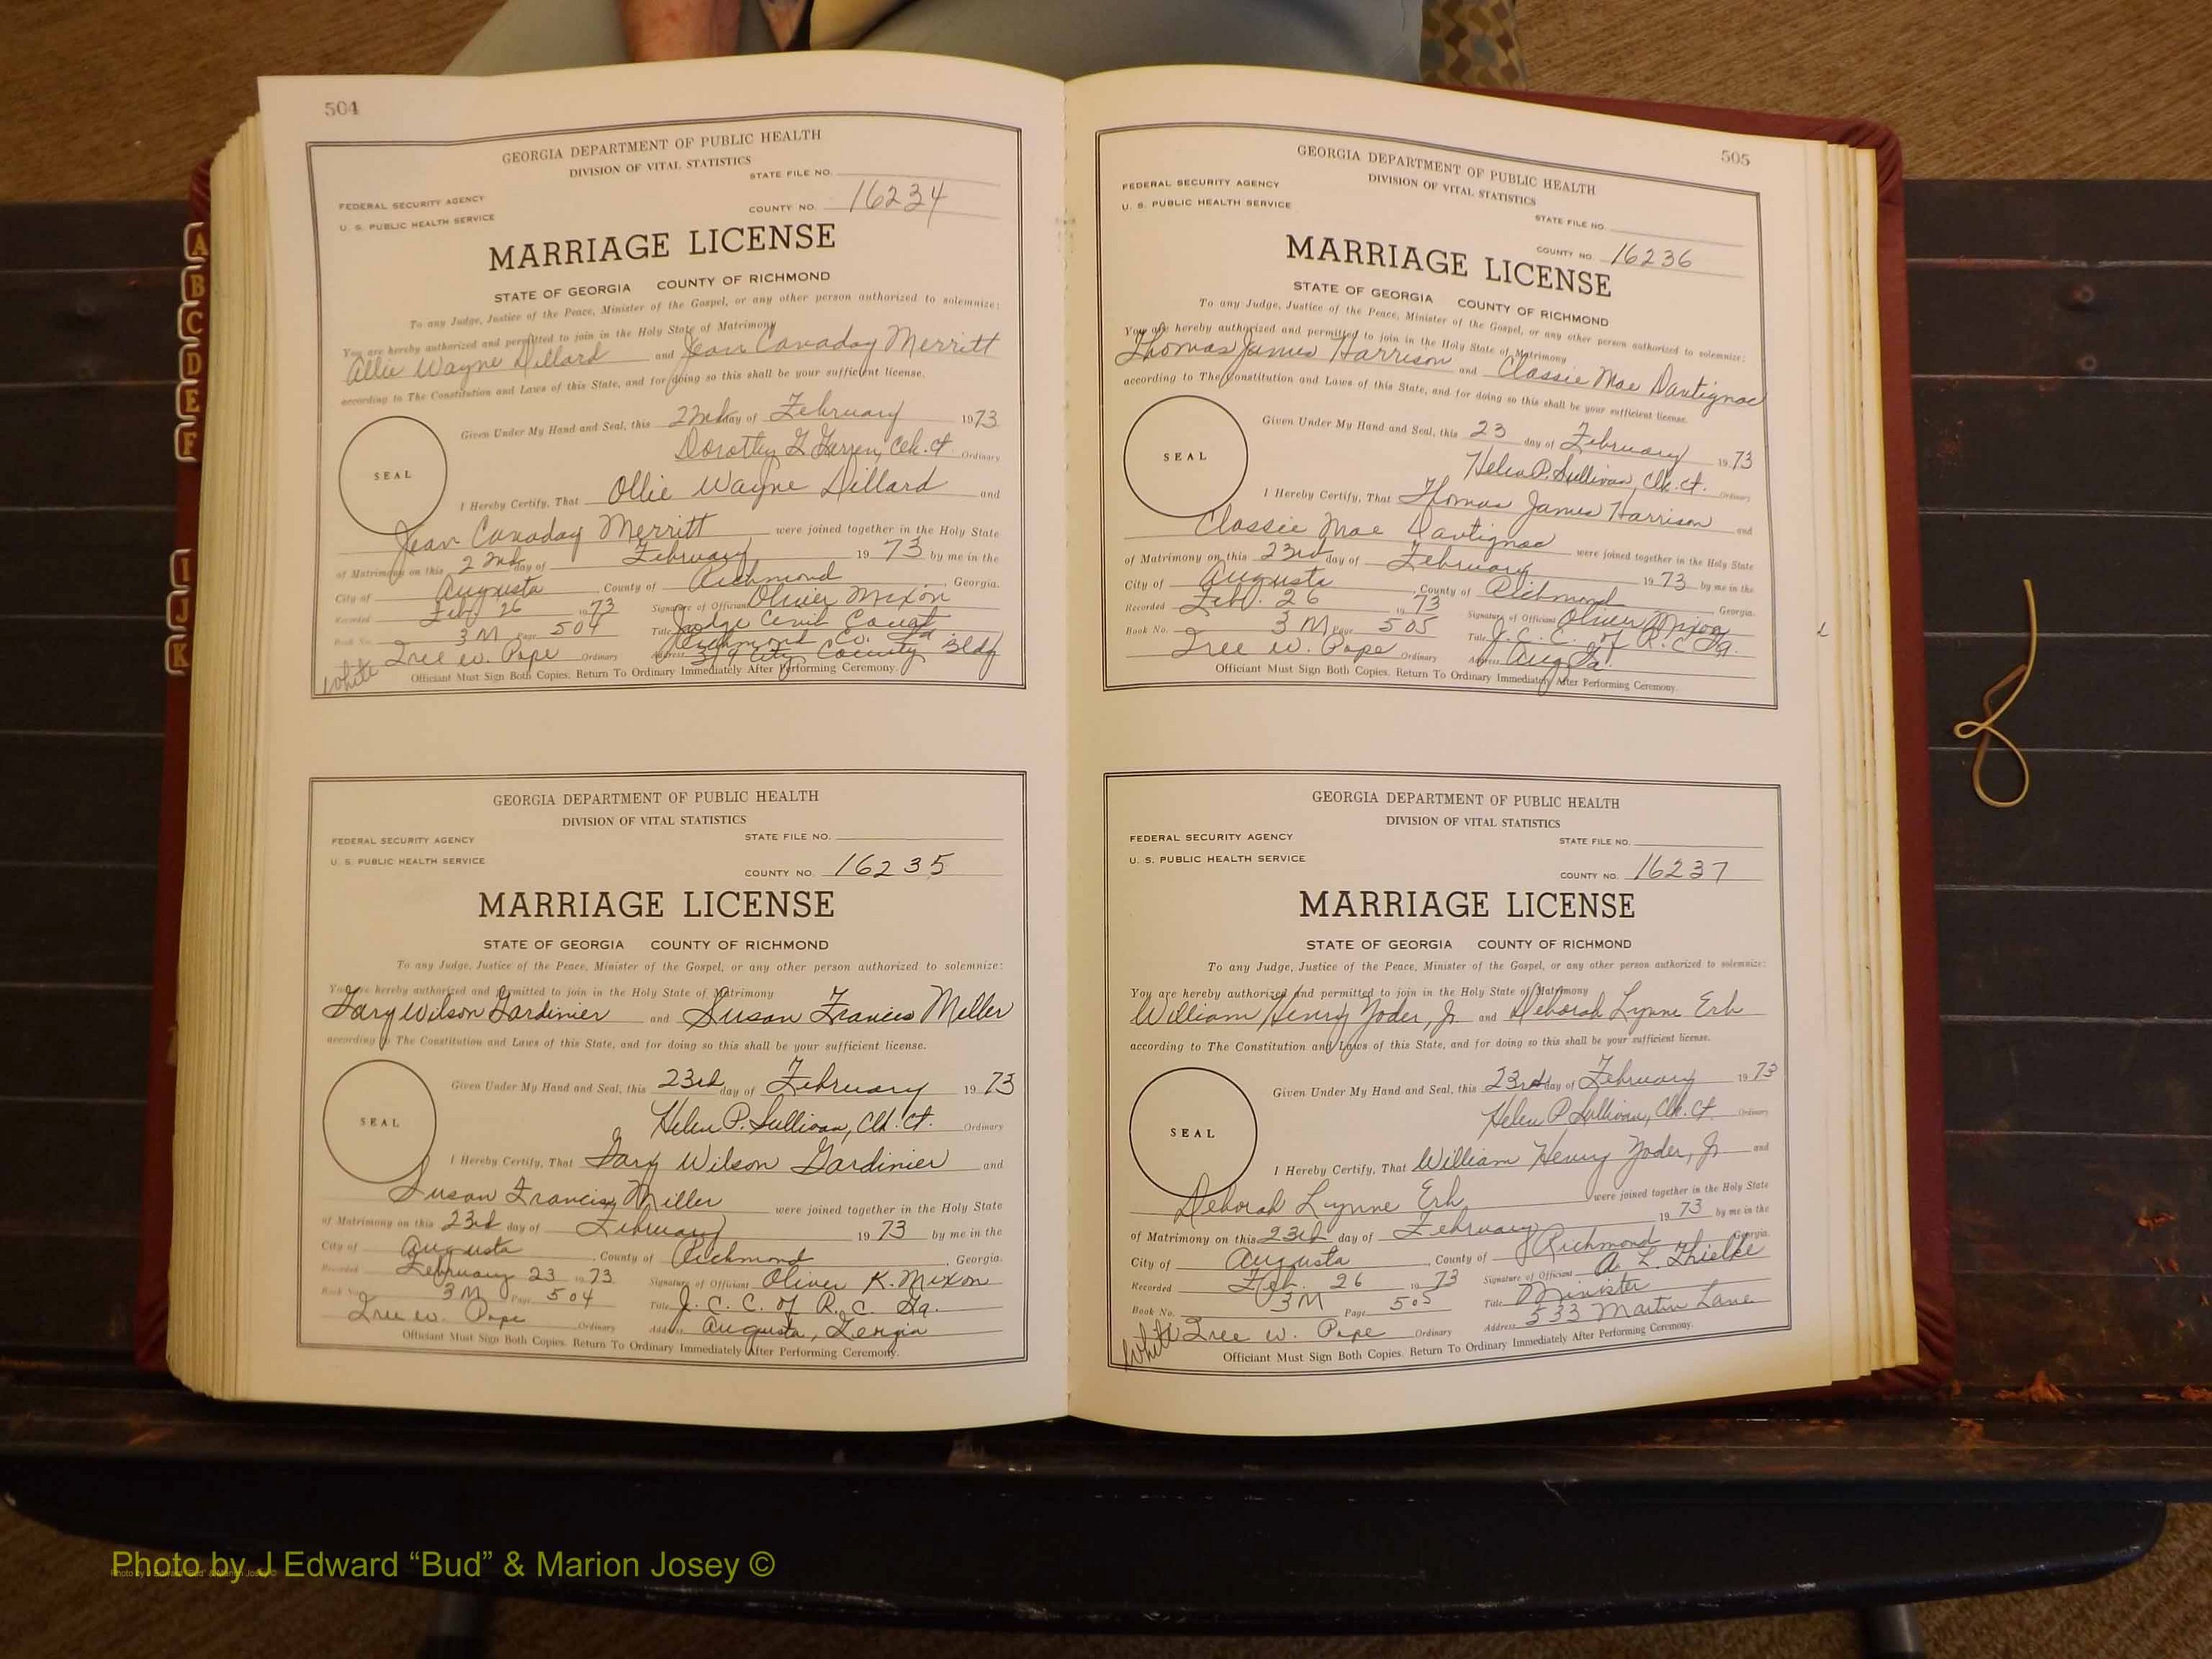 504
GEORGIA DEPARTMENT OF PUBLIC HEALTH
DIVISION OF VITAL STATISTICS
STATE FILE NO.
FEDERAL SECURITY AGENCY
U. S. PUBLIC HEALTH SERVICE
COUNTY NO. 16234
MARRIAGE LICENSE
STATE OF GEORGIA COUNTY OF RICHMOND
To any Judge, Justice of the Peace, Minister of the Gospel, or any other person authorized to solemnize:
You are hereby authorized and permitted to join in the Holy State of Matrimony
Ollie Wayne Dillard and Jean Canaday Merritt
according to The Constitution and Laws of this State, and for doing so this shall be your sufficient license.
Given Under My Hand and Seal, this 22nd day of February 1973
Dorothy G. Clk. Ct. Ordinary
SEAL
I Hereby Certify, That Ollie Wayne Dillard and
Jean Canaday Merritt were joined together in the Holy State
of Matrimony on this 22nd day of February 1973 by me in the
City of Augusta, County of Richmond, Georgia.
Recorded Feb 26 1973 Signature of Official Oliver Mixon
Book No. 3M Page 504 Title Judge Civil Court
Richmond Co. Ga
Tree W. Pope Ordinary Address 319 City County Bldg
white
Officiant Must Sign Both Copies. Return To Ordinary Immediately After Performing Ceremony.
GEORGIA DEPARTMENT OF PUBLIC HEALTH
DIVISION OF VITAL STATISTICS
FEDERAL SECURITY AGENCY STATE FILE NO.
U. S. PUBLIC HEALTH SERVICE
COUNTY NO. 16235
MARRIAGE LICENSE
STATE OF GEORGIA COUNTY OF RICHMOND
To any Judge, Justice of the Peace, Minister of the Gospel, or any other person authorized to solemnize:
You are hereby authorized and permitted to join in the Holy State of Matrimony
Gary Wilson Gardinier and Susan Francis Miller
according to The Constitution and Laws of this State, and for doing so this shall be your sufficient license.
Given Under My Hand and Seal, this 23rd day of February 1973
Helen P. Sullivan, Clk. Ct. Ordinary
SEAL
I Hereby Certify, That Gary Wilson Gardinier and
Susan Francis Miller were joined together in the Holy State
of Matrimony on this 23rd day of February 1973 by me in the
City of Augusta, County of Richmond, Georgia.
Recorded February 23 1973 Signature of Official Oliver K. Mixon
Book No. 3M Page 504 Title J. C. C. of R. C. Ga.
Tree W. Pope Ordinary Address Augusta, Georgia
Officiant Must Sign Both Copies. Return To Ordinary Immediately After Performing Ceremony.
505
GEORGIA DEPARTMENT OF PUBLIC HEALTH
DIVISION OF VITAL STATISTICS
FEDERAL SECURITY AGENCY
U. S. PUBLIC HEALTH SERVICE
STATE FILE NO.
COUNTY NO. 16236
MARRIAGE LICENSE
STATE OF GEORGIA COUNTY OF RICHMOND
To any Judge, Justice of the Peace, Minister of the Gospel, or any other person authorized to solemnize:
You are hereby authorized and permitted to join in the Holy State of Matrimony
Thomas James Harrison and Classie Mae Dautignac
according to The Constitution and Laws of this State, and for doing so this shall be your sufficient license.
Given Under My Hand and Seal, this 23 day of February 1973
Helen P. Sullivan, Clk. Ct. Ordinary
SEAL
I Hereby Certify, That Thomas James Harrison and
Classie Mae Dautignac were joined together in the Holy State
of Matrimony on this 23rd day of February 1973 by me in the
City of Augusta, County of Richmond Georgia.
Recorded Feb. 26 1973 Signature of Official Oliver Mixon
Book No. 3M Page 505 Title J. C. C. of R. C. Ga.
Tree W. Pope Ordinary Address Aug Ga.
Officiant Must Sign Both Copies. Return To Ordinary Immediately After Performing Ceremony.
GEORGIA DEPARTMENT OF PUBLIC HEALTH
DIVISION OF VITAL STATISTICS
FEDERAL SECURITY AGENCY STATE FILE NO.
U. S. PUBLIC HEALTH SERVICE
COUNTY NO. 16237
MARRIAGE LICENSE
STATE OF GEORGIA COUNTY OF RICHMOND
To any Judge, Justice of the Peace, Minister of the Gospel, or any other person authorized to solemnize:
You are hereby authorized and permitted to join in the Holy State of Matrimony
William Henry Yoder, Jr and Deborah Lynne Erb
according to The Constitution and Laws of this State, and for doing so this shall be your sufficient license.
Given Under My Hand and Seal, this 23rd day of February 1973
Helen P. Sullivan, Clk. Ct. Ordinary
SEAL
I Hereby Certify, That William Henry Yoder, Jr and
Deborah Lynne Erb were joined together in the Holy State
of Matrimony on this 23rd day of February 1973 by me in the
City of Augusta, County of Richmond Georgia.
Recorded Feb. 26 1973 Signature of Official A. L. Thielke
Book No. 3M Page 505 Title Minister
White Tree W. Pope Ordinary Address 533 Martin Lane
Officiant Must Sign Both Copies. Return To Ordinary Immediately After Performing Ceremony.
A
B
C
D
E
F
I
J
K
Photo by J Edward “Bud” & Marion Josey ©